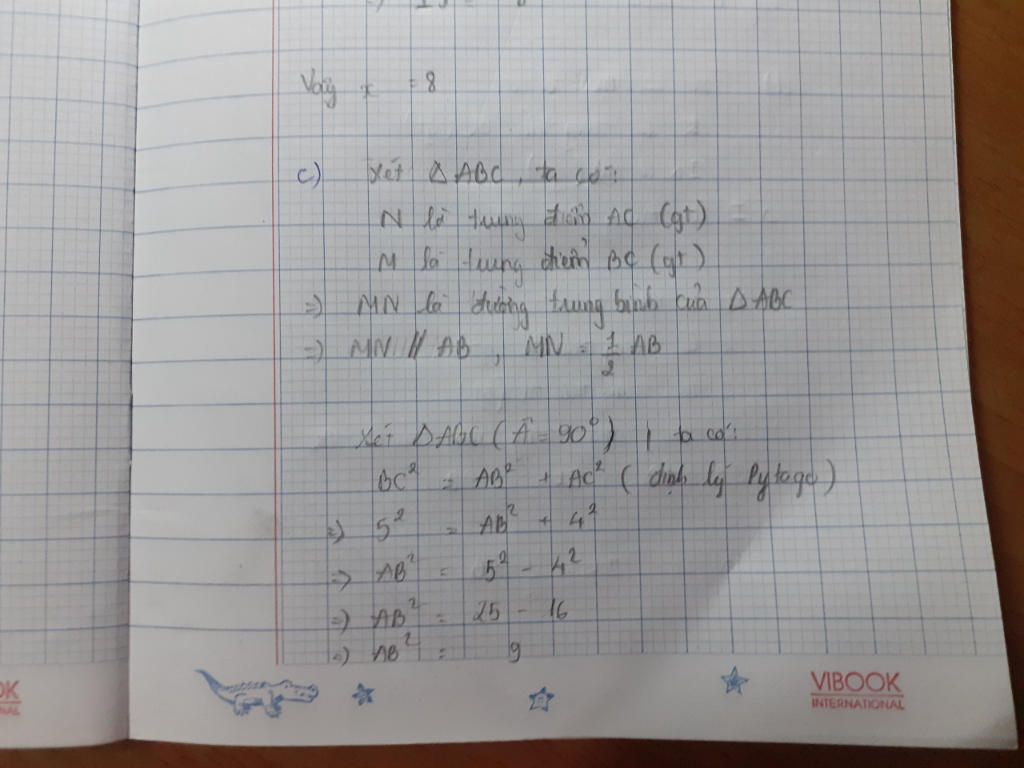 Vậy x = 8
c) Xét △ABC, ta có:
N là trung điểm AC (gt)
M là trung điểm BC (gt)
=) MN là đường trung bình của △ABC
=) MN // AB, MN = 1/2 AB
Xét △ABC (Â = 90°), ta có:
BC² = AB² + AC² (định lý Pytago)
=) 5² = AB² + 4²
=) AB² = 5² - 4²
=) AB² = 25 - 16
=) AB² = 9
VIBOOK
INTERNATIONAL